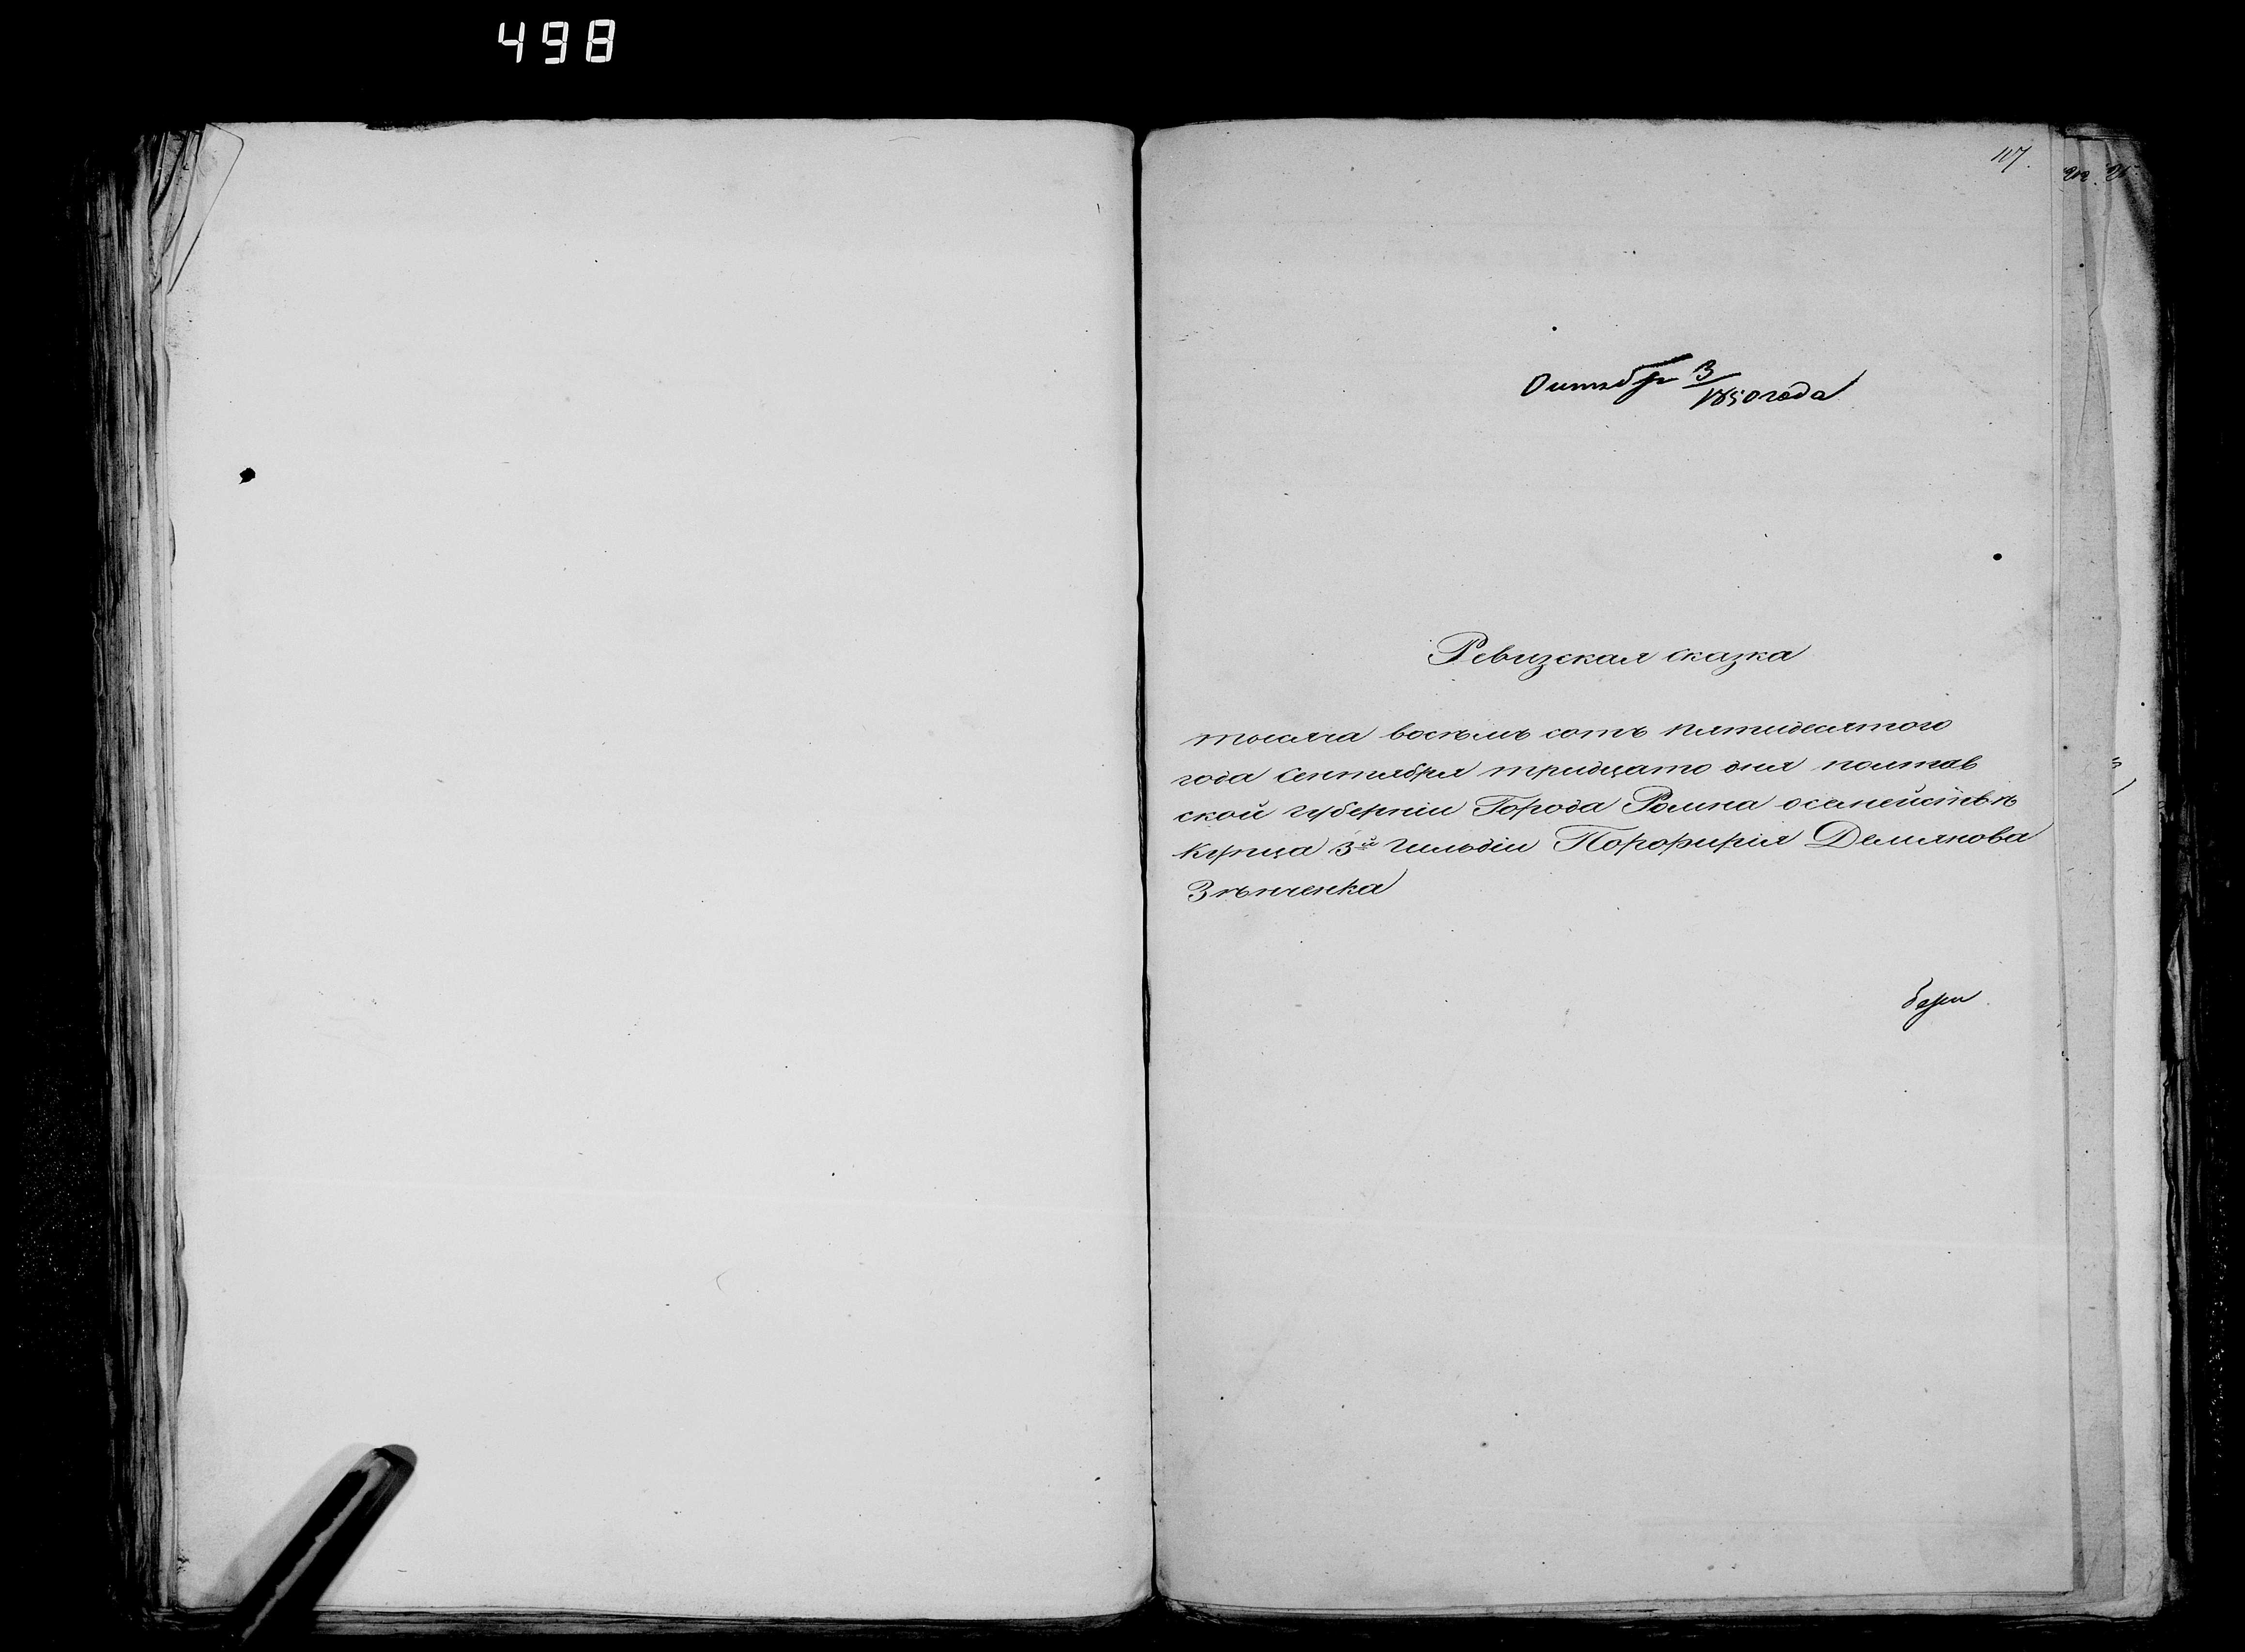 498
117.
Октября 3/1850 года
Ревизская сказка
тысяча восѣмъ сотъ пятидесятого
года Сентября тридцато дня полтав
ской губерніи Города Ромна осемействѣ
Купца 3й Гильдіи Порофирія Демянова
Зѣнченка